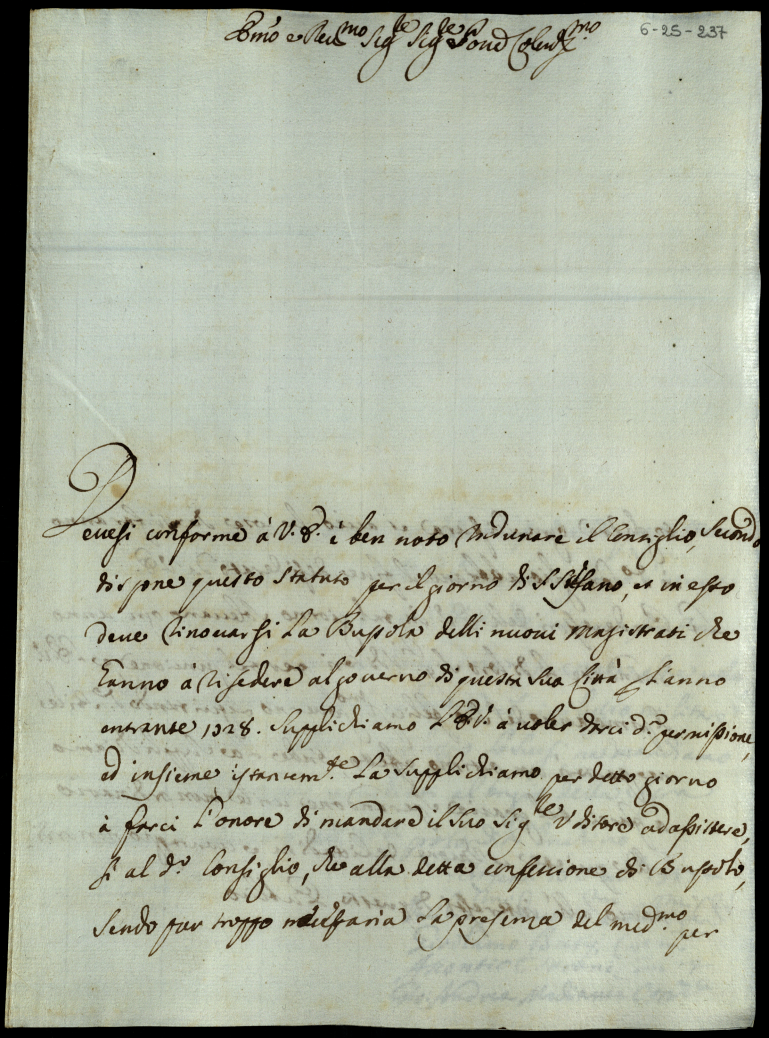 Emo e Revmo Sigre Sigre Pron Colendmo
6-25-237
Devesi conforme à V. E. è ben noto radunare il Consiglio, secondo
dispone questo Statuto per il giorno di S. Stefano, et in esso
deve rinovarsi la Bussola delli nuovi Magistrati che
hanno à risedere al governo di questa sua Città l'anno
entrante 1728. Supplichiamo l'E. V. à voler darci da. permissione,
ed insieme istantemte la supplichiamo per detto giorno
à farci l'onore di mandare il suo Sigre Uditore ad assistere,
si al do. Consiglio, che alla detta confezzione di Bussolo,
sendo pur troppo necessaria la presenza del medmo per